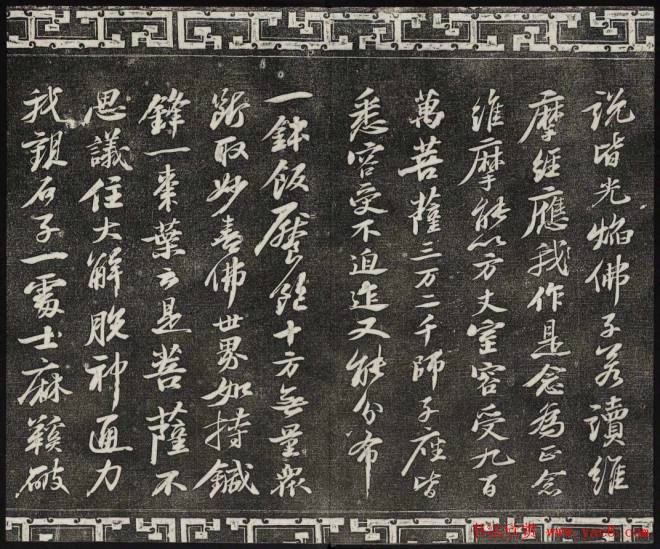 説皆光焰佛子若讀維
摩經應我作是念為正念
維摩能以方丈室容受九百
萬菩薩三万二千師子座皆
悉容受不迫迮又能分布
一鉢飯饜飽十方無量眾
斷取妙喜佛世界如持鍼
鋒一棗葉云是菩薩不
思議住大解脫神通力
我觀石子一處士麻鞵破
书法欣赏 www.yac8.com